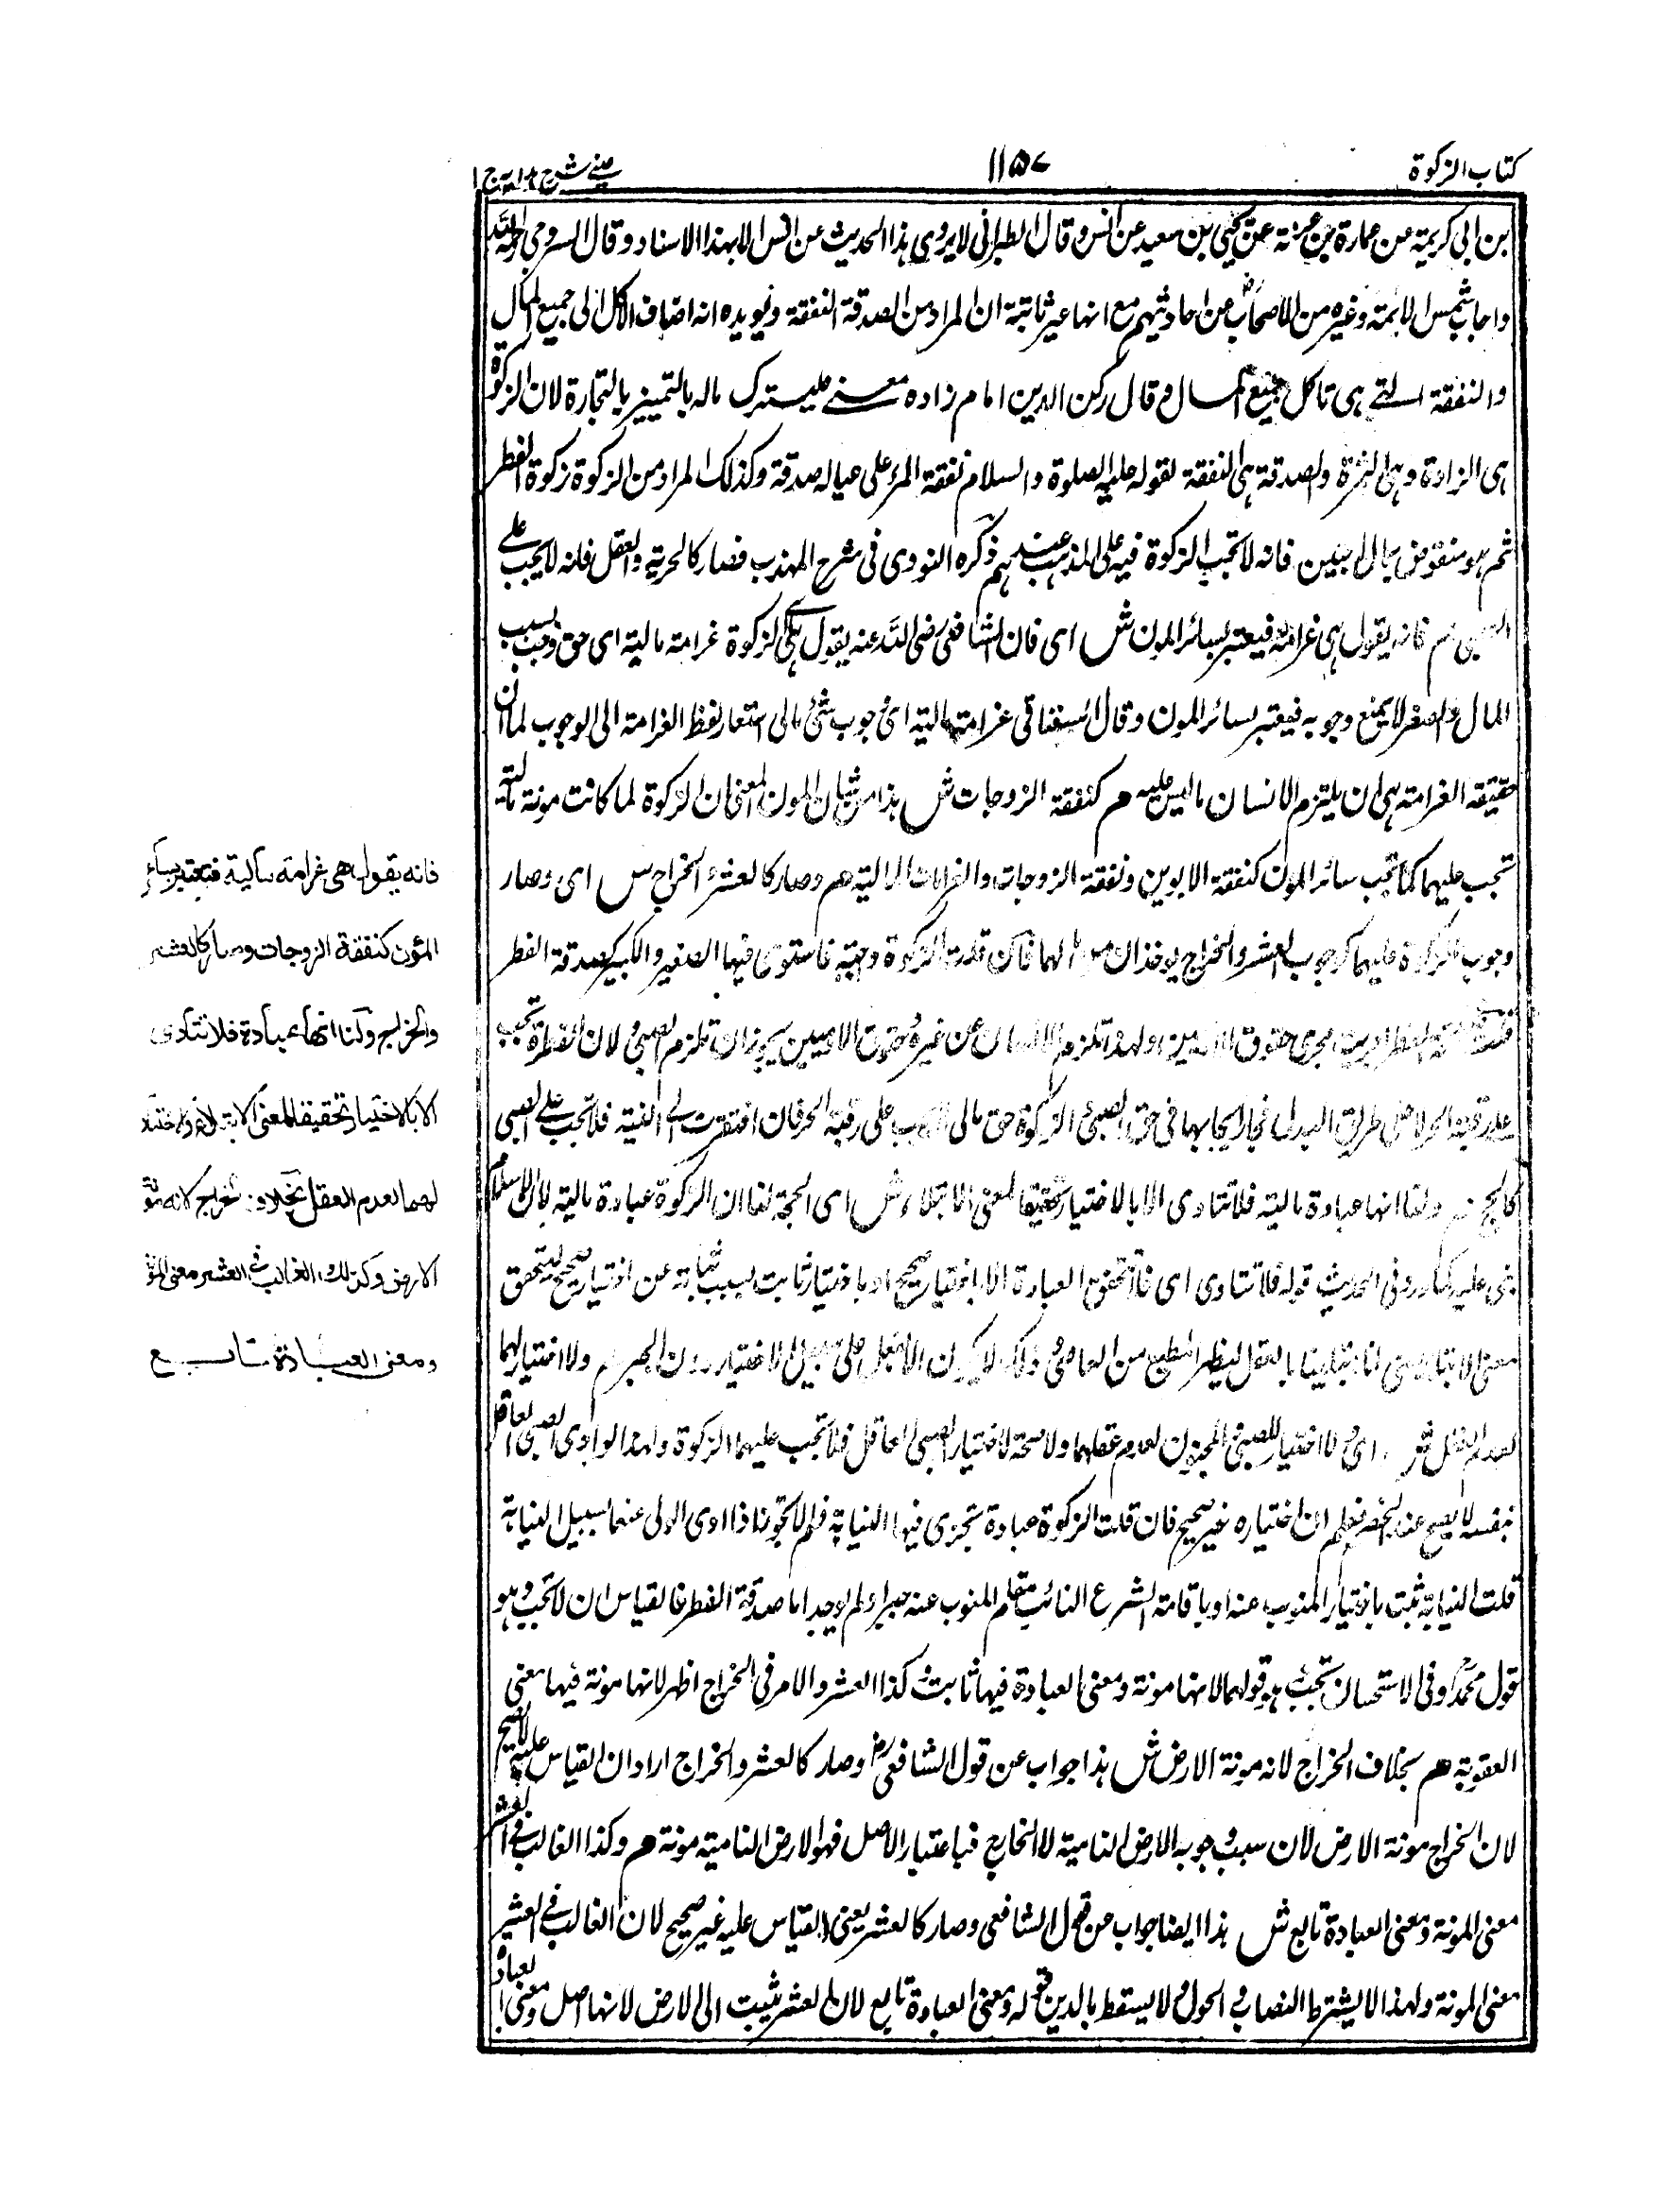 كتاب الزكوة
١١٥٧
عينے شرح هدايه ج ١
بن ابى كريمة عن عمارة بن غزية عن يحيى بن سعيد عن انس وقال الطبرانى لا يروى هذا الحديث عن انس الا بهذا الاسناد وقال السروجى رحمه الله
واجاب شمس الائمة وغيره من الاصحاب عن احاديثهم مع انها غير ثابتة ان المراد من الصدقة النفقة ويويده انه اضاف الاكل الى جميع المال
والنفقة التے هى تاكل جميع المال وقال ركن الدين امام زاده معنے ماله بالتمييز بالتجارة لان الزكوة
هى الزادة وهى الثمرة والصدقة هى النفقة لقوله عليه الصلوة والسلام نفقة المرء على عياله صدقة وكذلك المراد من الزكوة زكوة الفطر
ثم هو منقوض بمال الجنين فانه لا تجب الزكوة فيه على المذهب عندهم ذكره النووى فى شرح المهذب فصار كالحرية والعقل فانه لا يجب علے
الصبى م فانه يقول هى غرامة فيعتبر بسائر المون ش اى فان الشافعى رضى الله عنه يقول الزكوة غرامة مالية اى حق وجب بسبب
المال والصغر لا يمنع وجوبه فيعتبر بسائر المون وقال السغناقى غرامة مالية اى وجوب شئ مالى استعار لفظ الغرامة الى الوجوب لما ان
حقيقة الغرامة هى ان يلتزم الانسان ما ليس عليه م كنفقة الزوجات ش هذا من بيان المون المعنى ان الزكوة لما كانت مونة مالية
تجب عليهما كما تجب سائر المون كنفقة الابوين ونفقة الزوجات والغرامات المالية م وصار كالعشر والخراج ش اى وصار
وجوب الزكوة عليهما كوجوب العشر والخراج يوخذان من مالهما فان قلت الزكوة واجبة فاستوى فيها الصغير والكبير كصدقة الفطر
قلت صدقة الفطر اجريت مجرى حقوق الادميين ولهذا تلزم الانسان عن غيره وحقوق الادميين يجوز ان تلزم الصبى ولان الفطرة تجب
على رقبة الحر لا على طريق البدل فجاز ايجابها فى حق الصبى الزكوة حق مالى على رقبة الحر فان افتقرت الى النية فلا تجب على الصبى
كالحج م ولنا انها عبادة مالية فلا تتادى الا بالاختيار تحقيقا لمعنى الابتلاء ش اى الحجة لنا ان الزكوة عبادة مالية لان الاسلام
بنى عليه كما ورد فى الحديث قوله فلا تتادى اى فلا تتحقق العبادة الا باختيار صحيح او باختيار ثابت بسبب نيابة عن اختيار صحيح ليتحقق
معنى الابتلاء بالعقل ليظهر المطيع من العاصى وذلك لا يكون الا بفعل على سبيل الاختيار دون الجبر م ولا اختيار لهما
لعدم العقل ش اى ولا اختيار للصبى والمجنون لعدم عقلهما ولا صحة لاختيار الصبى العاقل فلا تجب عليهما الزكوة ولهذا لو ادى الصبى العاقل
بنفسه لا يصح عند الخصم فعلم ان اختياره غير صحيح فان قلت الزكوة عبادة تجزى فيها النيابة فلم لا تجوز اذا ادى الولى عنهما بسبيل النيابة
قلت النيابة تثبت باختيار المنوب عنه او باقامة الشرع النائب مقام المنوب عنه جبرا ولم يوجد اما صدقة الفطر فالقياس ان لا تجب وهو
قول محمد وفى الاستحسان تجب وهو قولهما لانها مونة ومعنى العبادة فيها ثابت وكذا العشر والامر فى الخراج اظهر لانها مونة فيها معنى
العقوبة م بخلاف الخراج لانه مونة الارض ش هذا جواب عن قول الشافعى وصار كالعشر والخراج اراد ان القياس عليه لا يصح
لان الخراج مونة الارض لان سبب وجوبه الارض النامية لا الخارج فباعتبار الاصل فهو الارض النامية مونة م وكذا الغالب فى العشر
معنى المونة ومعنى العبادة تابع ش هذا ايضا جواب من قول الشافعى وصار كالعشر يعنى القياس عليه غير صحيح لان الغالب فى العشر
معنى المونة ولهذا لا يشترط النصاب والحول ولا يسقط بالدين قوله ومعنى العبادة تابع لان العشر يثبت الى الارض لانها اصل ومعنى العبادة
فانه يقول هى غرامة مالية فيعتبر بسائر
المؤن كنفقة الزوجات وصار كالعشر
والخراج ولنا انها عبادة فلا تتادى
الا بالاختيار تحقيقا لمعنى الابتلاء ولا اختيار
لهما لعدم العقل بخلاف الخراج لانه مؤنة
الارض وكذلك الغالب فى العشر معنى المؤنة
ومعنى العبادة تابع